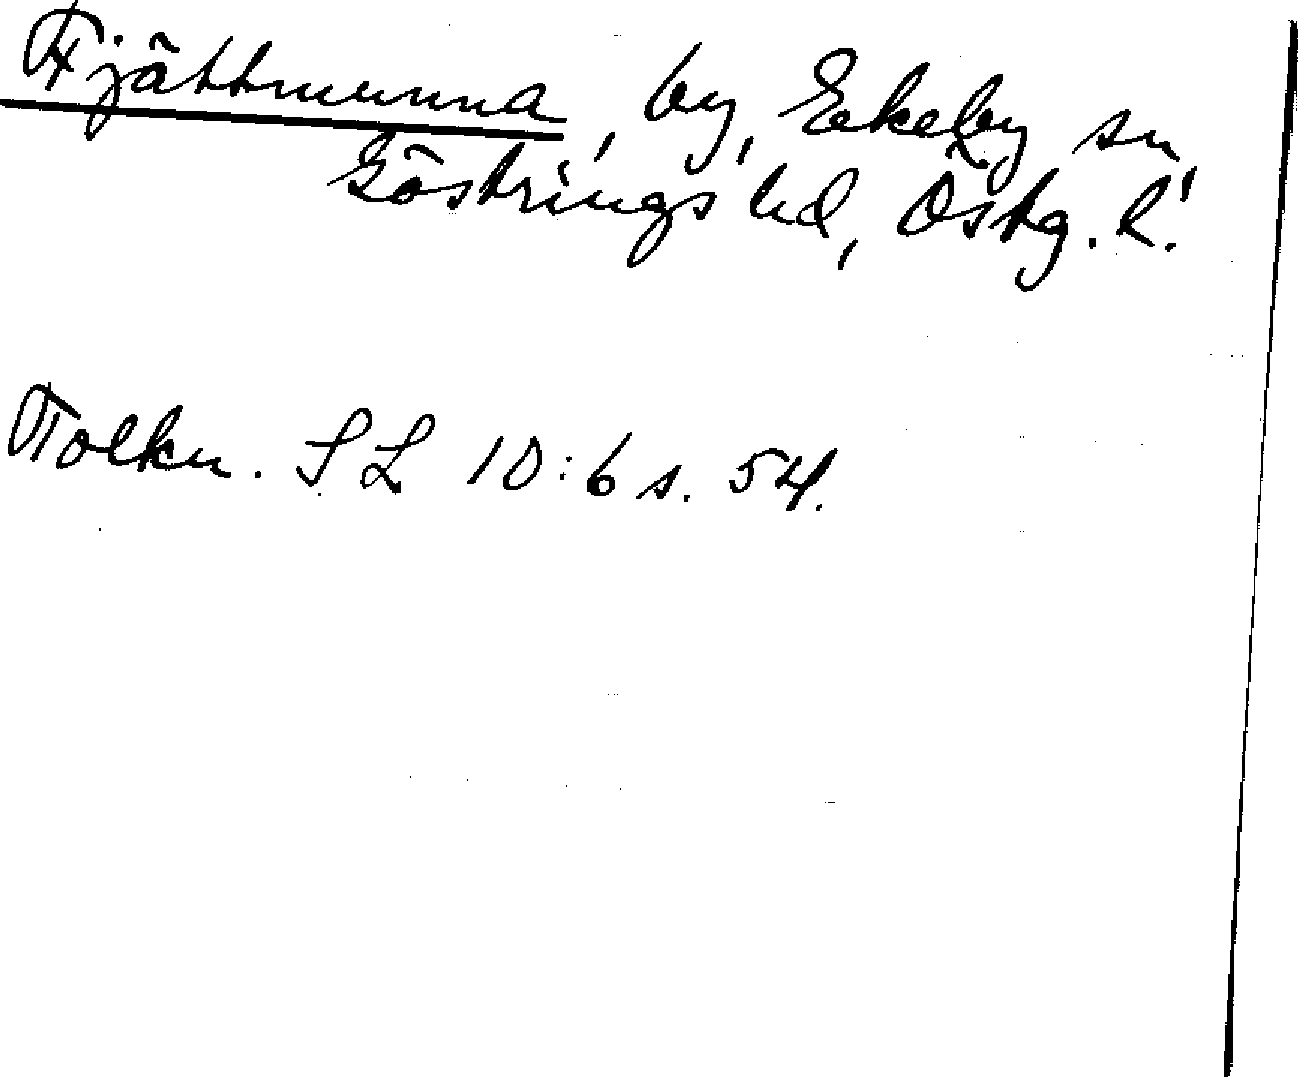 Fjättmunna, by, Ekeby sn,
Göstrings hd, Östg. l.
Tolkn. SL 10:6 s. 54.